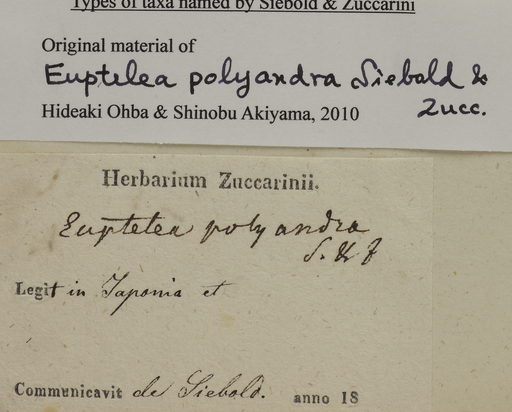 Types of taxa named by Siebold & Zuccarini
Original material of
Euptelea polyandra Siebold &
Zucc.
Hideaki Ohba & Shinobu Akiyama, 2010
Herbarium Zuccarinii.
Euptelea polyandra
S. & Z
Legit in Japonia et
Communicavit de Siebold. anno 18